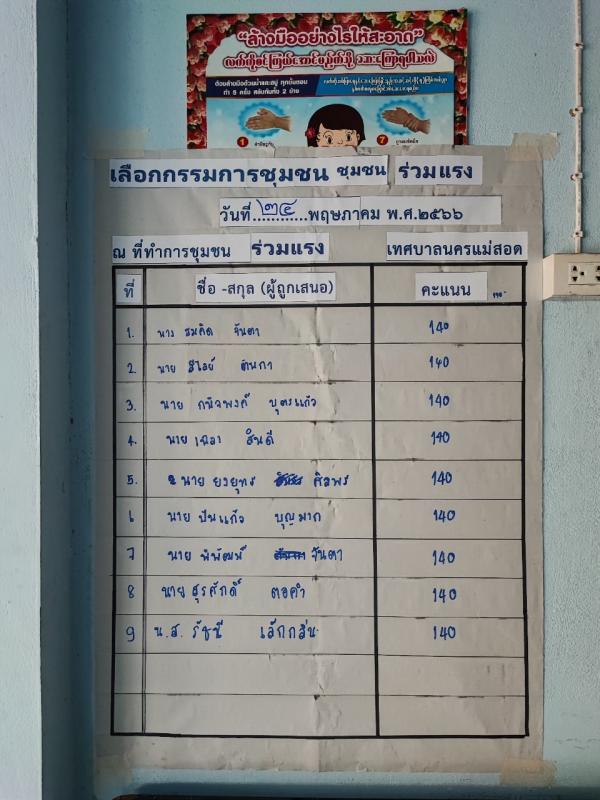 "ล้างมืออย่างไรให้สะอาด"
ต้องล้างมือด้วยน้ำและสบู่ ทุกขั้นตอน
ทำ 5 ครั้ง สลับกันทั้ง 2 ข้าง
1
7
เลือกกรรมการชุมชน ชุมชน ร่วมแรง
วันที่ ๒๔ พฤษภาคม พ.ศ.๒๕๖๖
ณ ที่ทำการชุมชน ร่วมแรง เทศบาลนครแม่สอด
ที่ ชื่อ -สกุล (ผู้ถูกเสนอ) คะแนน
1. นาง สมคิด จันตา 140
2. นาย ศิไลย์ ต้นกา 140
3. นาย กนิจพงค์ บุตรแก้ว 140
4. นาย เฉลา อินดี 140
5. นาย ยงยุทธ ศิลพร 140
6 นาย ปันแก้ว บุญมาก 140
7 นาย พิพัฒน์ จันตา 140
8 นาย สุรศักดิ์ ตอคำ 140
9 น.ส. รัชนี เล็กกลิ่น 140